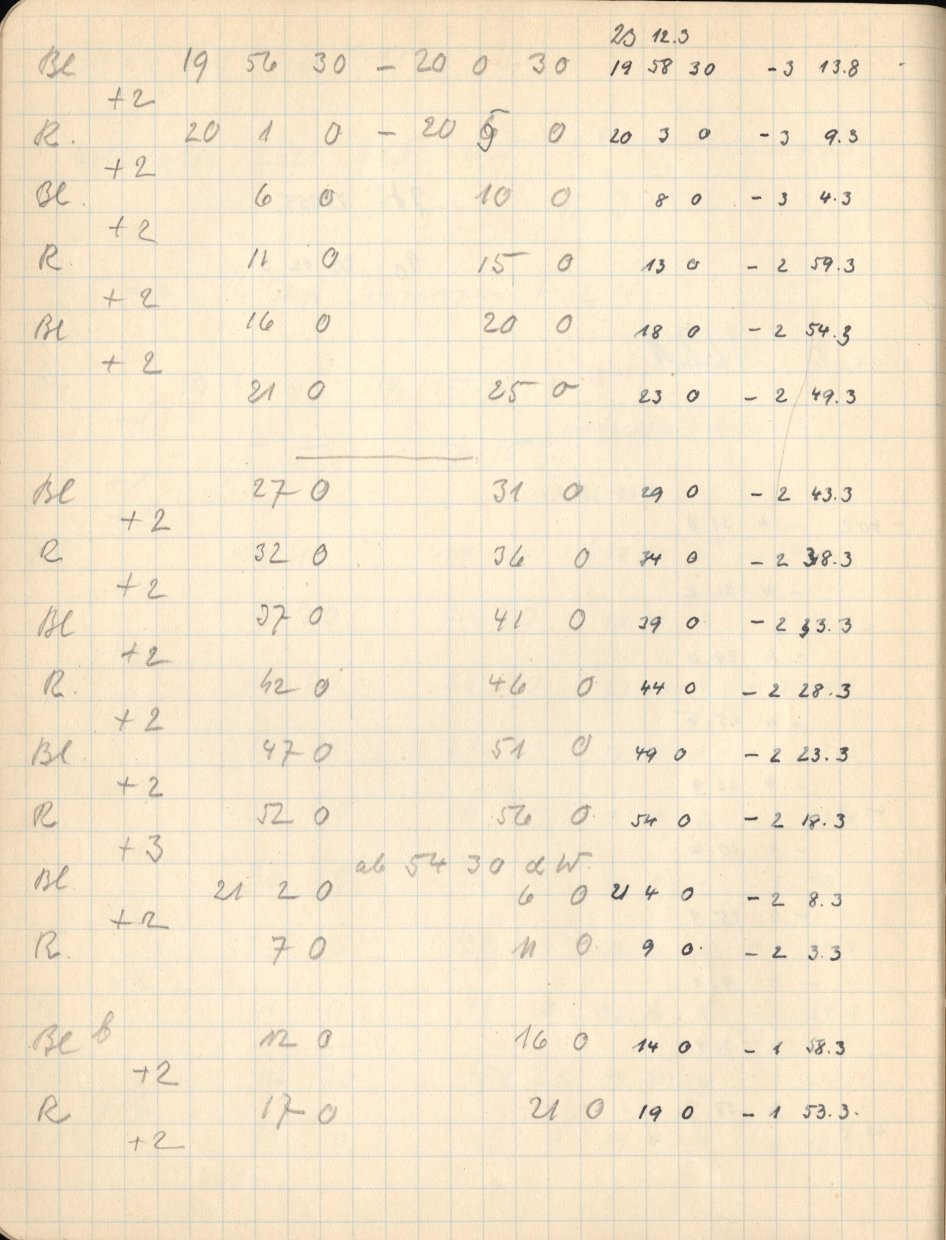 23 12.3
Bl 19 56 30 - 20 0 30 19 58 30 -3 13.8
+2
R. 20 1 0 - 20 5 0 20 3 0 -3 9.3
+2
Bl. 6 0 10 0 8 0 -3 4.3
+2
R. 11 0 15 0 13 0 -2 59.3
+2
Bl 16 0 20 0 18 0 -2 54.3
+2
21 0 25 0 23 0 -2 49.3
Bl 27 0 31 0 29 0 -2 43.3
+2
R 32 0 36 0 34 0 -2 38.3
+2
Bl 37 0 41 0 39 0 -2 33.3
+2
R. 42 0 46 0 44 0 -2 28.3
+2
Bl 47 0 51 0 49 0 -2 23.3
+2
R 52 0 56 0 54 0 -2 18.3
+3
ab 54 30 d W.
Bl 21 2 0 6 0 21 4 0 -2 8.3
+2
R. 7 0 11 0 9 0 -2 3.3
Bl b 12 0 16 0 14 0 -1 58.3
+2
R 17 0 21 0 19 0 -1 53.3
+2